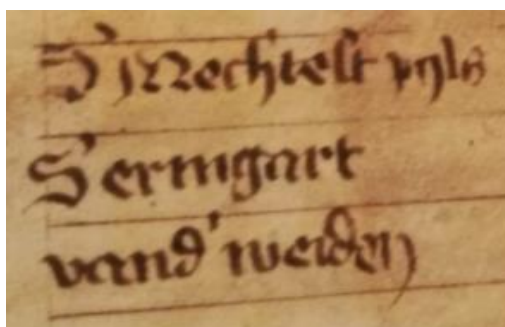 S Mechtelt pyls
S ermgart
vand' weiden